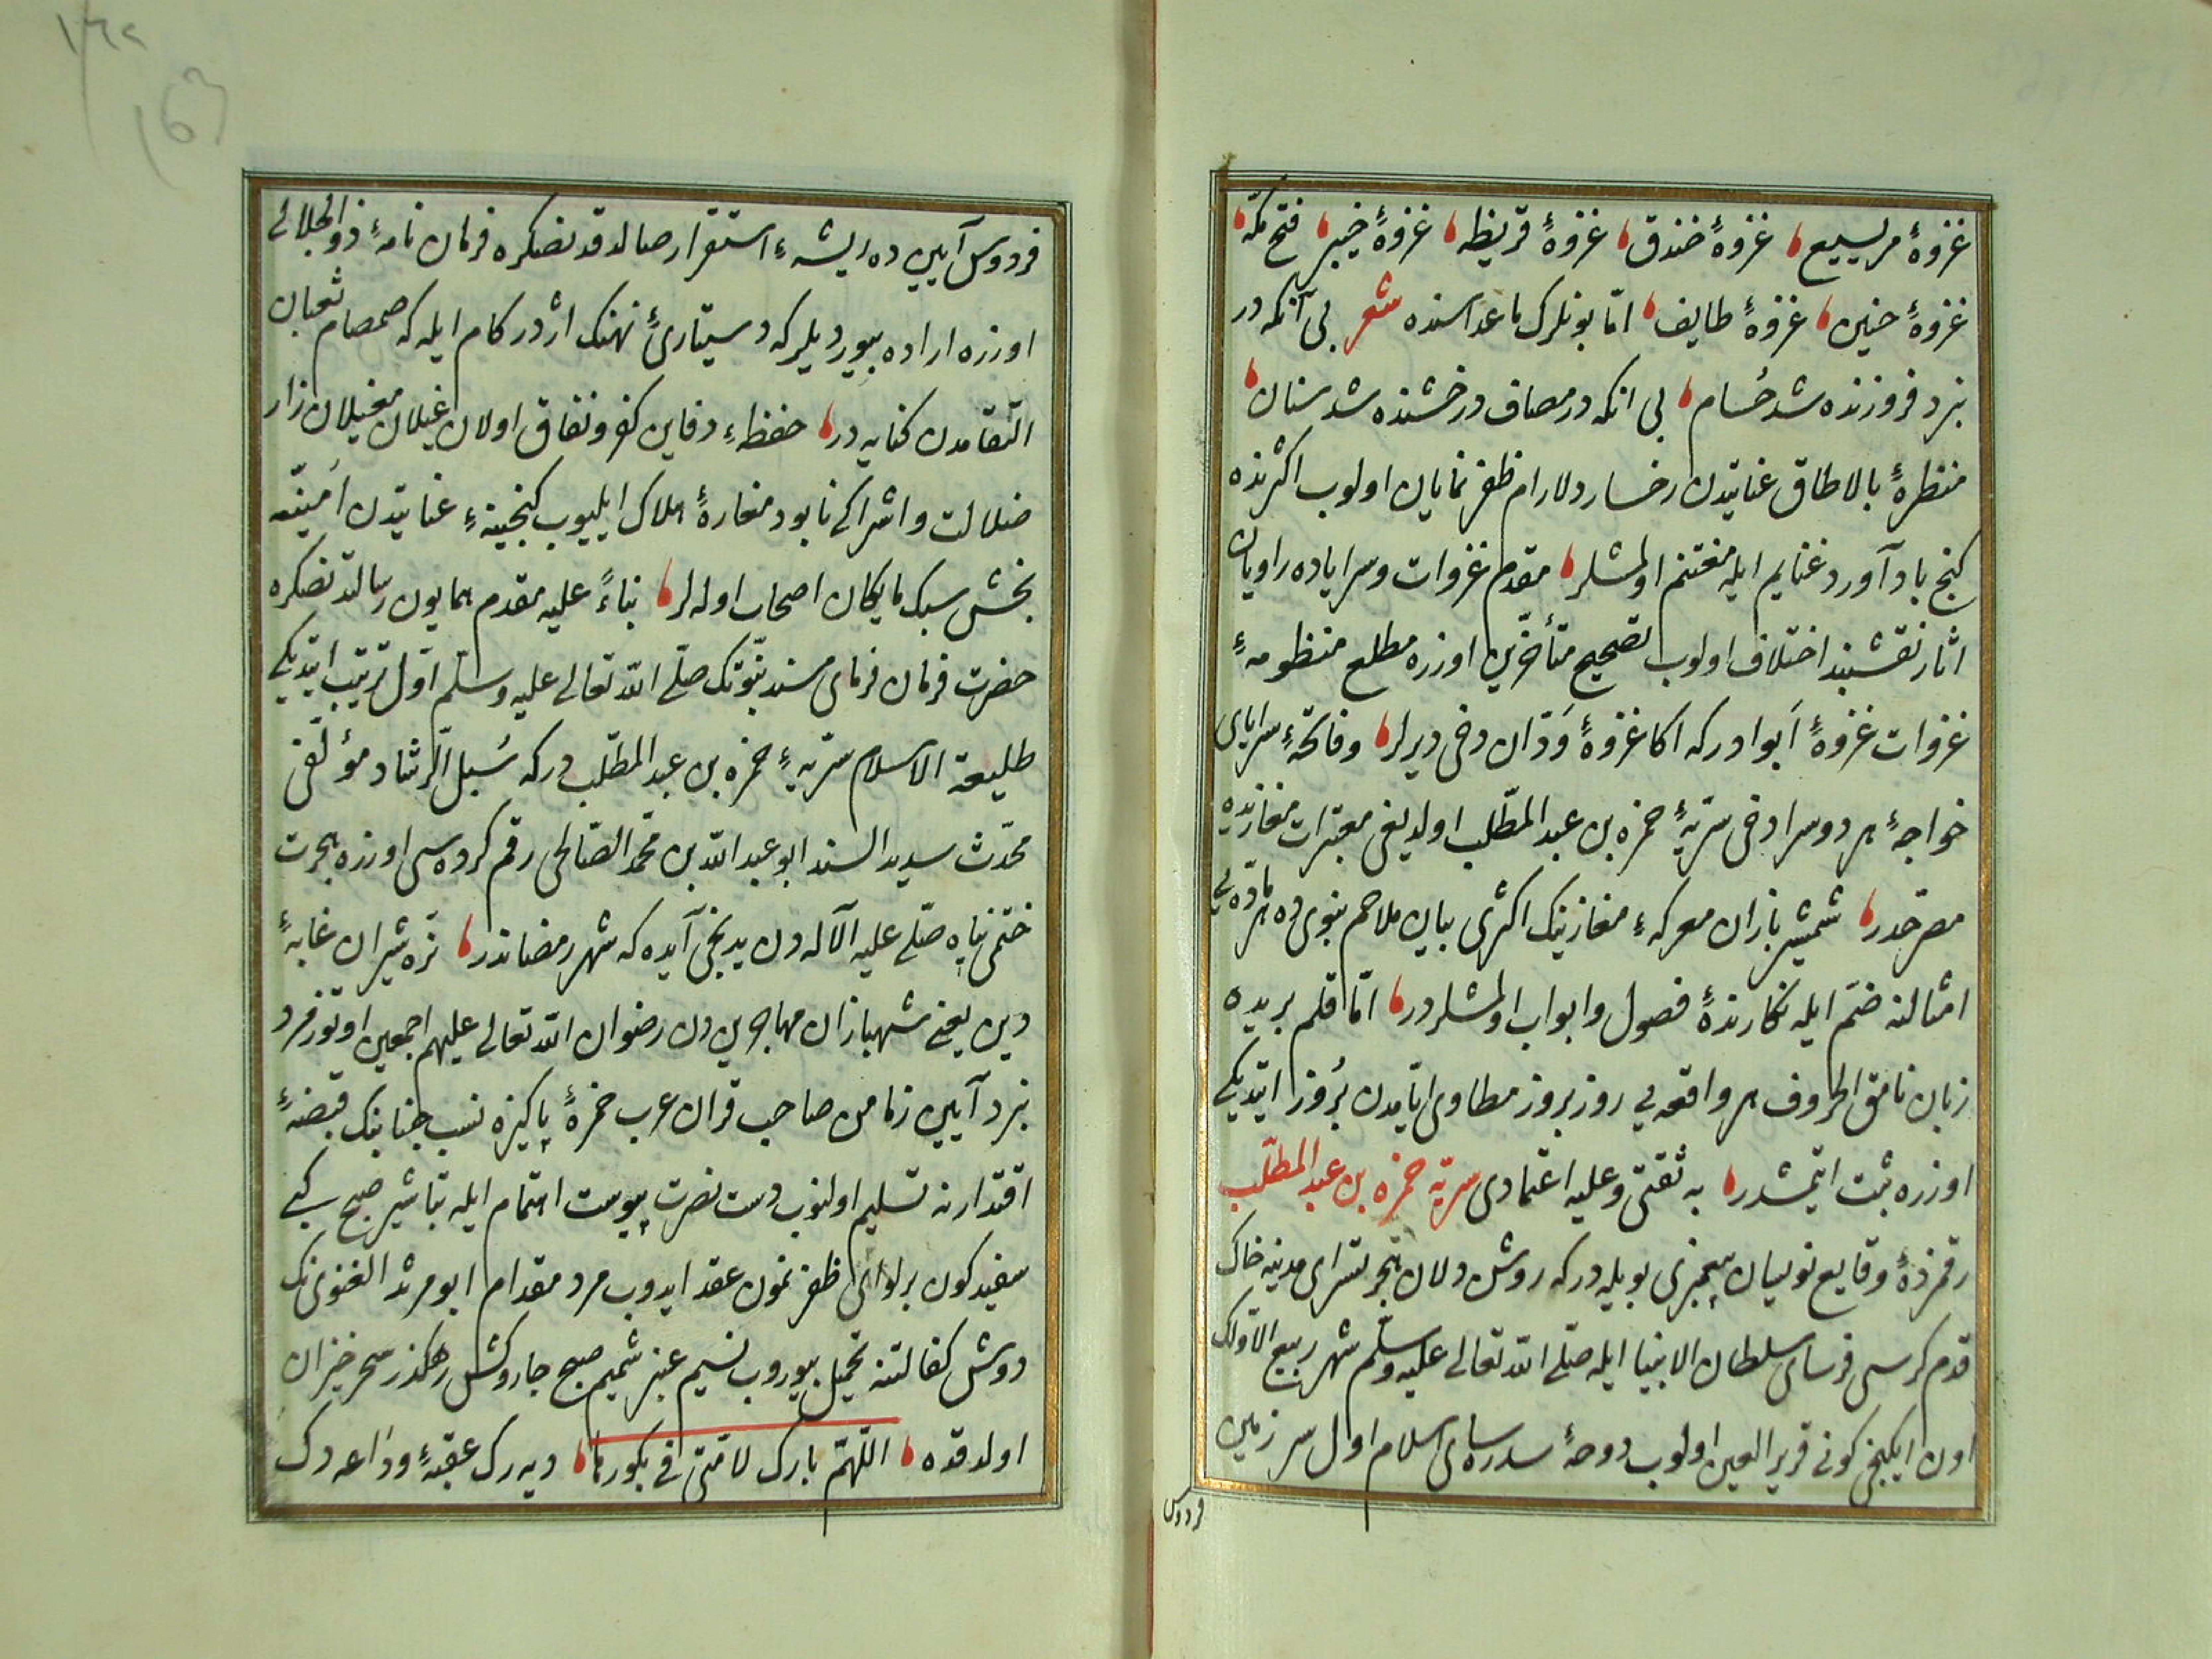 غزوۀ مریسیع غزوۀ خندق غزوۀ قریظه غزوۀ خیبر فتح مکّه
غزوۀ حنین غزوۀ طایف امّا بونلرک ماعداسنده شعر بی آنکه در
نبرد فروزنده شد حُسام بی انکه در مصاف درخشنده شد سنان
منظرۀ بالاطاق عنایتدن رخسار دلارام ظفر نمایان اولوب اکثرنده
کنج بادآورد غنایم ایله مغتنم اولمشلر مقدم غزوات و سرایاده راویان
اثار نقشبند اختلاف اولوب تصحیح متأخّرین اوزره مطلع منظومۀ
غزوات غزوۀ اَبوا در که اکا غزوۀ وَدّان دخی دیرلر و فاتحۀ سرایای
خواجۀ هر دوسرا دخی سرّیۀ حمزه بن عبد المطّلب اولدیغی معتبرات مغازیده
مصرّحدر شمشیر بازان معرکۀ مغازینک اکثری بیان ملاحم نبوی ده هر مادّه یی
امثالنه ضمّ ایله نکارندۀ فصول و ابواب اولمشلردر امّا قلم بریده
زبان نامق الحروف هر واقعه یی روز بروز مطاوی ایّامدن بُروز ایتدیکی
اوزره ثبت ایتمشدر به ثقتی و علیه اعتمادی سریّه حمزه بن عبد المطّلب
رقمزدۀ وقایع نویسان پیغمبری بویله در که روشن دلان هجرتسرای مدینه خاک
قدم کرسی فرسای سلطان الانبیا ایله صلّی الله تعالی علیه وسلّم شهر ربیع الاوّلک
اون ایکنجی کونی قریر العین اولوب دوحۀ سدره سای اسلام اول سر زمین
فردوس
۱٦۲
163
فردوس آیین ده ریشۀ استقرار صالدقدنصکره فرمان نامۀ ذو الجلالی
اوزره اراده بیوردیلر که دستیارئ نهنک اژدر کام ایله که صمصام ثعبان
التقامدن کنایه در حفظۀ دفاین کفر و نفاق اولان غیلان مغیلان زار
ضلالت و اشراکی نابود مغارۀ هلاک ایلیوب کنجینۀ عنایتدن اُمنیّه
بخش سبک مایکان اصحاب اوله لر بناءً علیه مقدم همایون رسالتدنصکره
حضرت فرمان فرمای مسند نبوّتک صلّی الله تعالی علیه وسلّم اوّل ترتیب ایتدیکی
طلیعة الاسلام سرّیۀ حمزه بن عبد المطّلب در که سُبل الرّشاد مؤلّفی
محدّث سدید السند ابو عبد الله بن محمّد الصّالحی رقم کرده سی اوزره هجرت
ختمی پناه صلّی علیه الآله دن یدنجی آیده که شهر رمضاندر نرّه شیران غابۀ
دین یعنی شهبازان مهاجرین دن رضوان الله تعالی علیهم اجمعین اوتوز فرد
نبرد آیین زمامن صاحب قران عرب حمزۀ پاکیزه نسب جنابنک قبضۀ
اقتدارنه تسلیم اولنوب دست نصرت پیوست اهتمام ایله تباشیر صبح کبی
سفید کون بر لوای ظفر نمون عقد ایدوب مرد مقدام ابو مرثد الغنوی نک
دوش کفالتنه تحمیل بیوروب نسیم عنبر شمیم صبح جاروکش رهکذر سحر خیزان
اولدقده اللّهمّ بارک لامّتی فی بکورها دیه رک عقبۀ وداعه دک